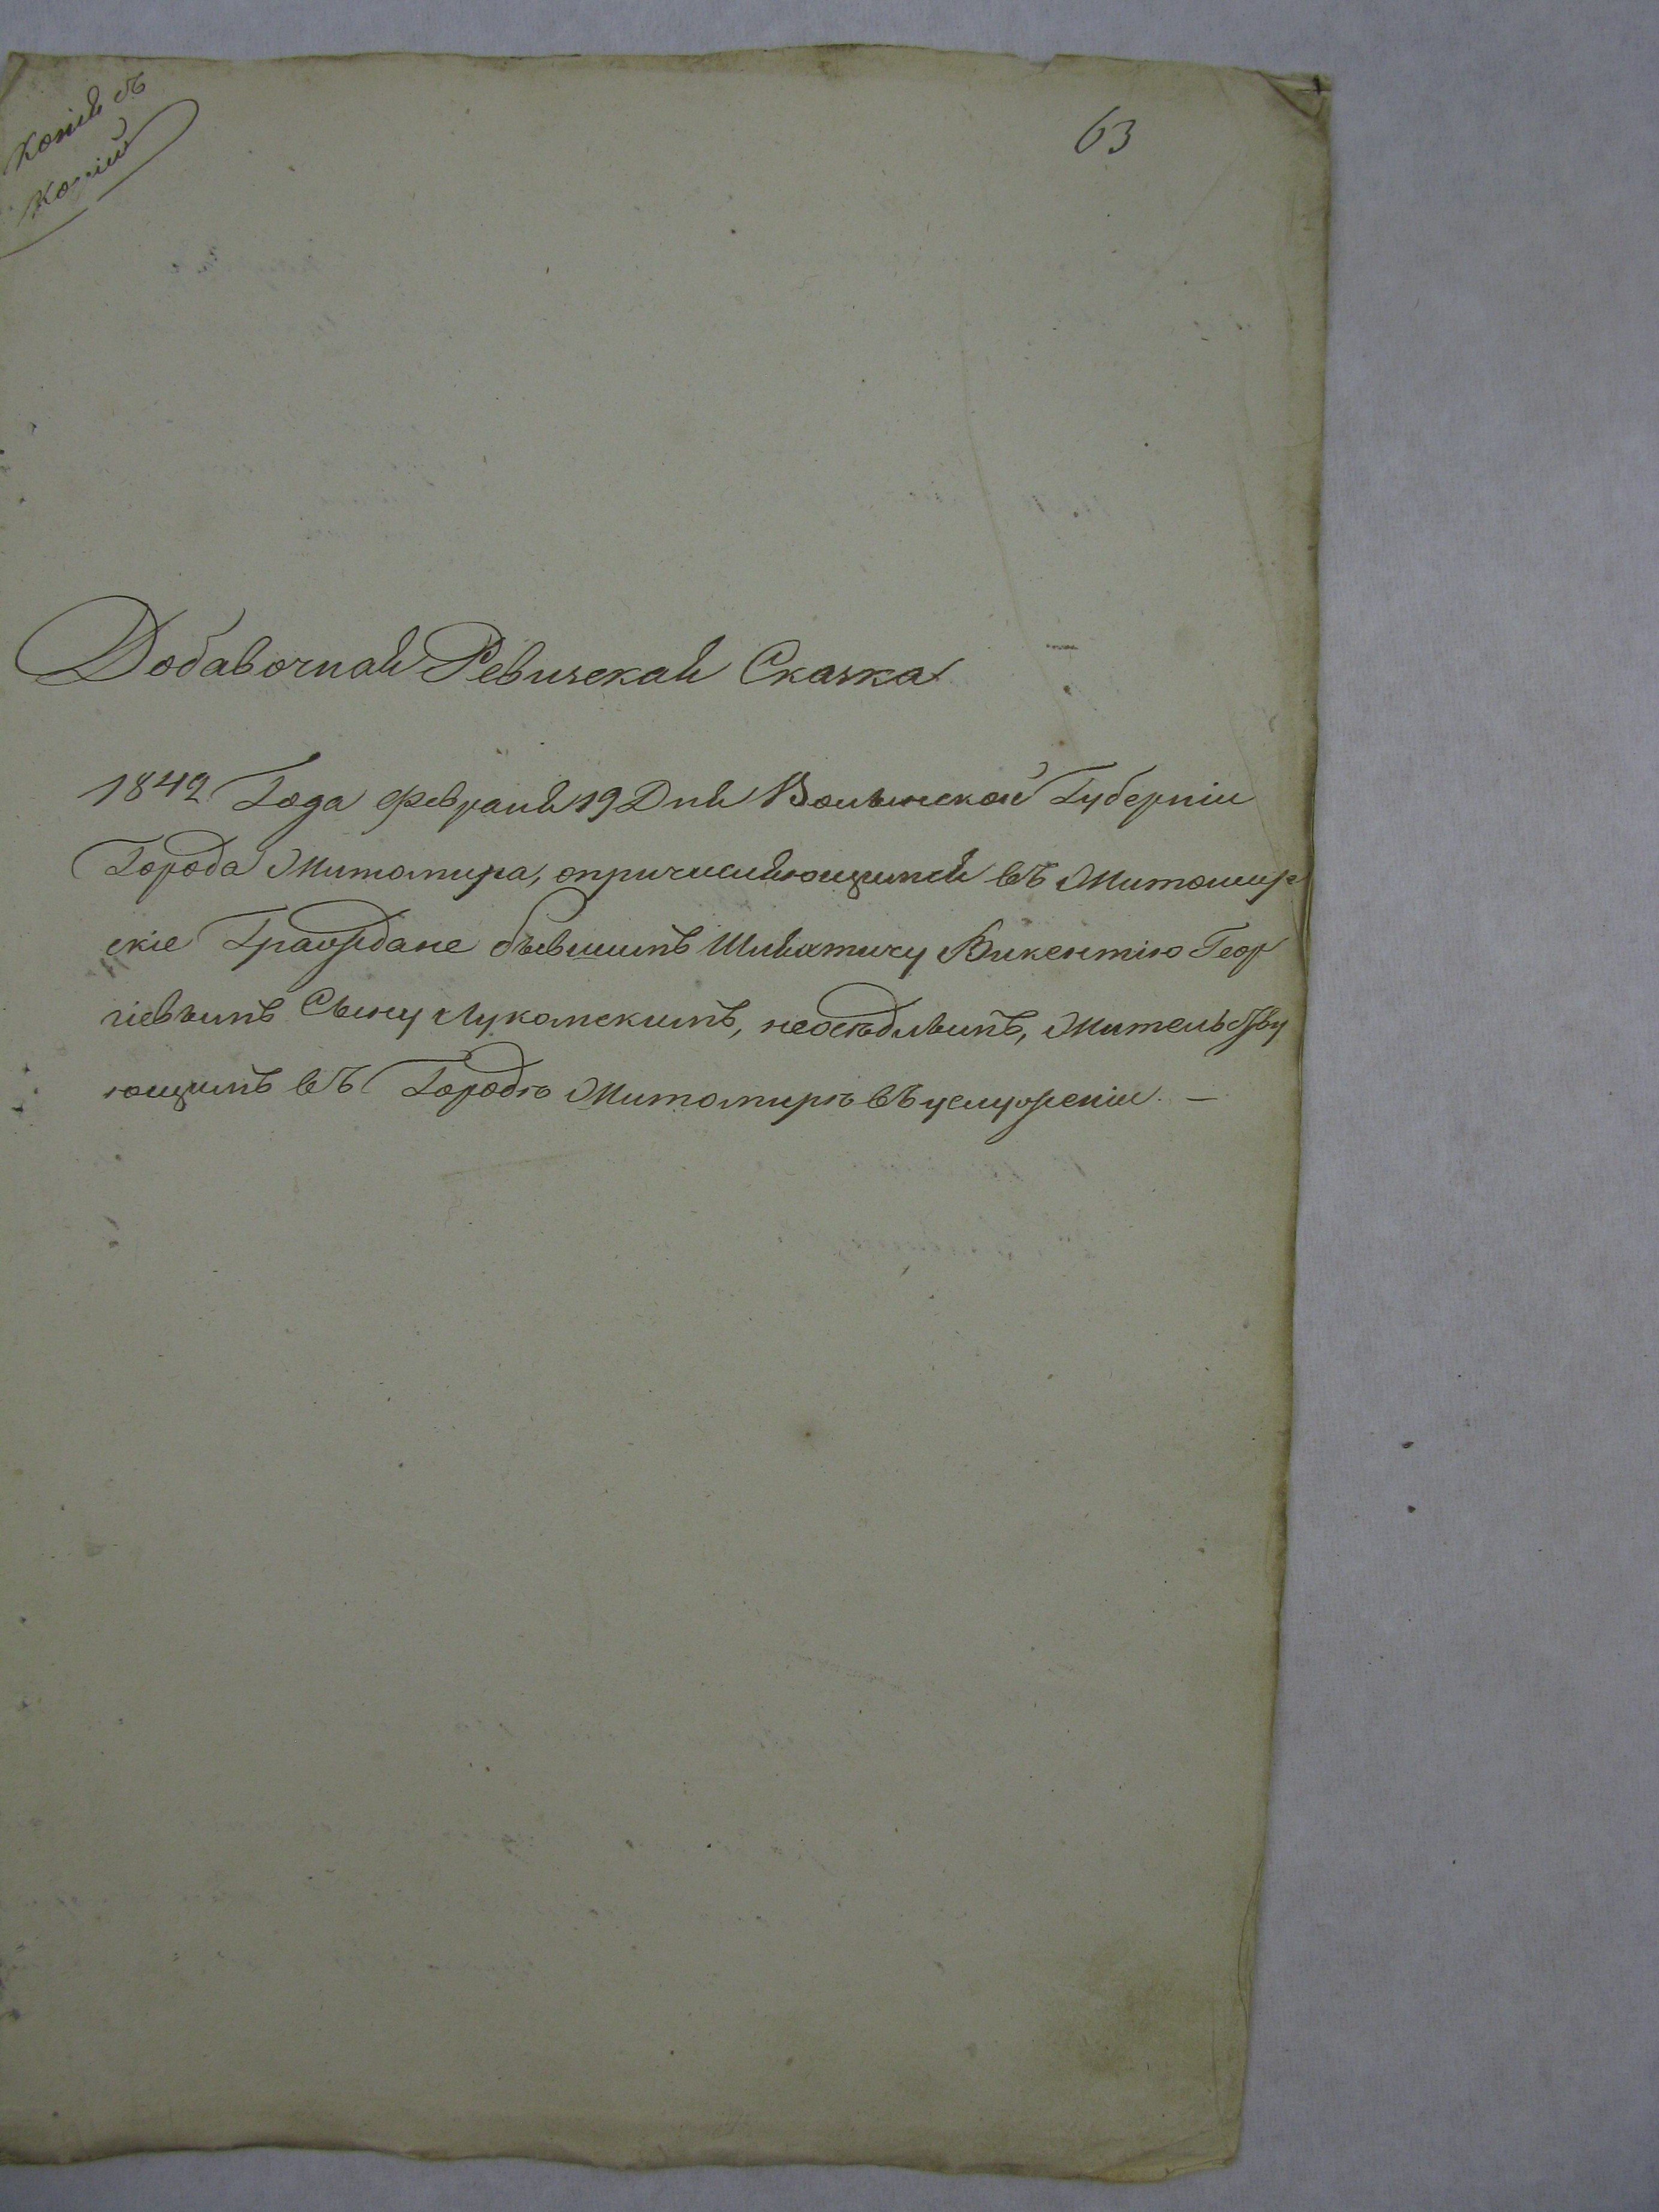 Копія съ
Копіи
63
Добавочная Ревизская Сказка
1842 Года Февраля 19 Дня Волынской Губерніи
Города Житомира, о причисляющимся въ Житомир
скіе Граждане бывшимъ Шляхтичу Викентію Геор
гіевымъ Сыну Лукомскимъ, неосѣдлымъ, Жительству
ющимъ въ Городѣ Житомирѣ въ услуженіи. —